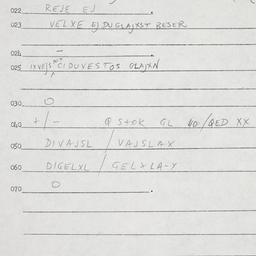 022 REJE EJ
023 VELXE EJ DUGLAJXST BESER
024 –
025 CIDUVESTOS OLAJXN
030 O
040 +/– Q STOK GL 40/QED XX
050 DIVAJSL / VAJSLAX
060 DIGELXL / GELXLA-Y
070 O